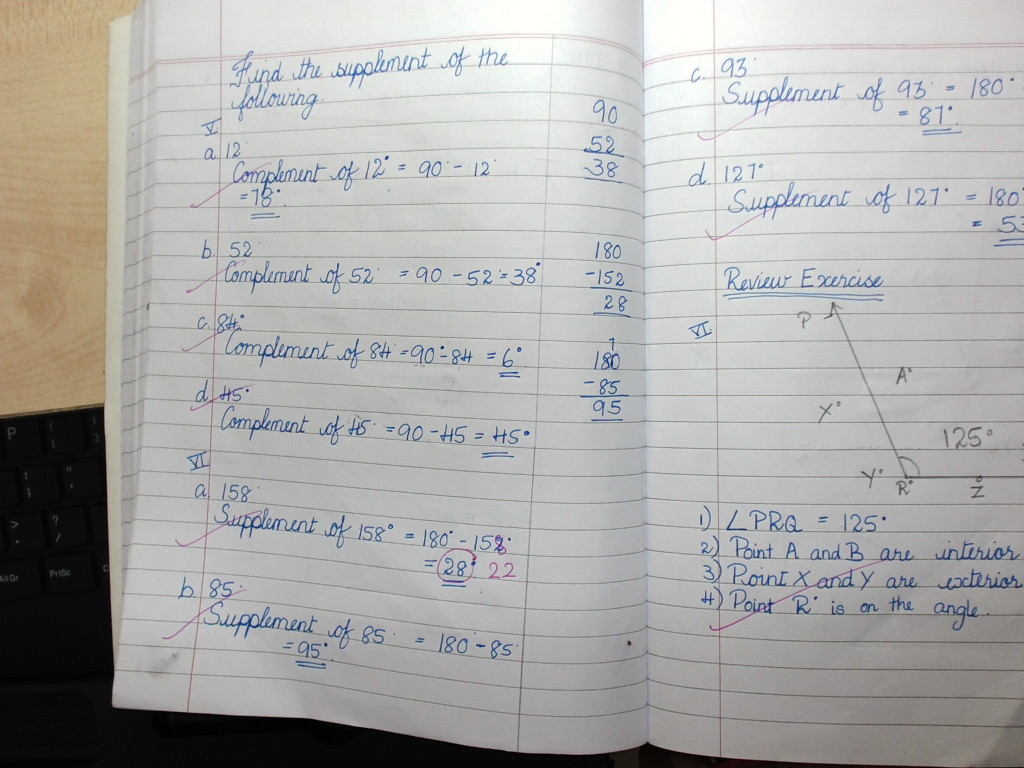 Find the supplement of the
following.
V
a. 12°
Complement of 12° = 90° - 12°
= 78°
b. 52°
Complement of 52° = 90 - 52 = 38°
c. 84°
Complement of 84 = 90° - 84 = 6°
d. 45°
Complement of 45° = 90 - 45 = 45°
VI
a. 158°
Supplement of 158° = 180° - 158°
= 28° 22
b. 85°
Supplement of 85° = 180° - 85°
= 95°
90
52
38
180
-152
28
7
180
-85
95
c. 93°
Supplement of 93° = 180°
= 87°
d. 127°
Supplement of 127° = 180°
= 53
Review Exercise
VI
P
A°
X°
125°
Y°
R°
Z
1) ∠PRQ = 125°
2) Point A and B are interior
3) Point X and Y are exterior
4) Point 'R' is on the angle.
P
{
[
}
]
:
;
"
'
>
.
?
/
AltGr
PrtSc
C